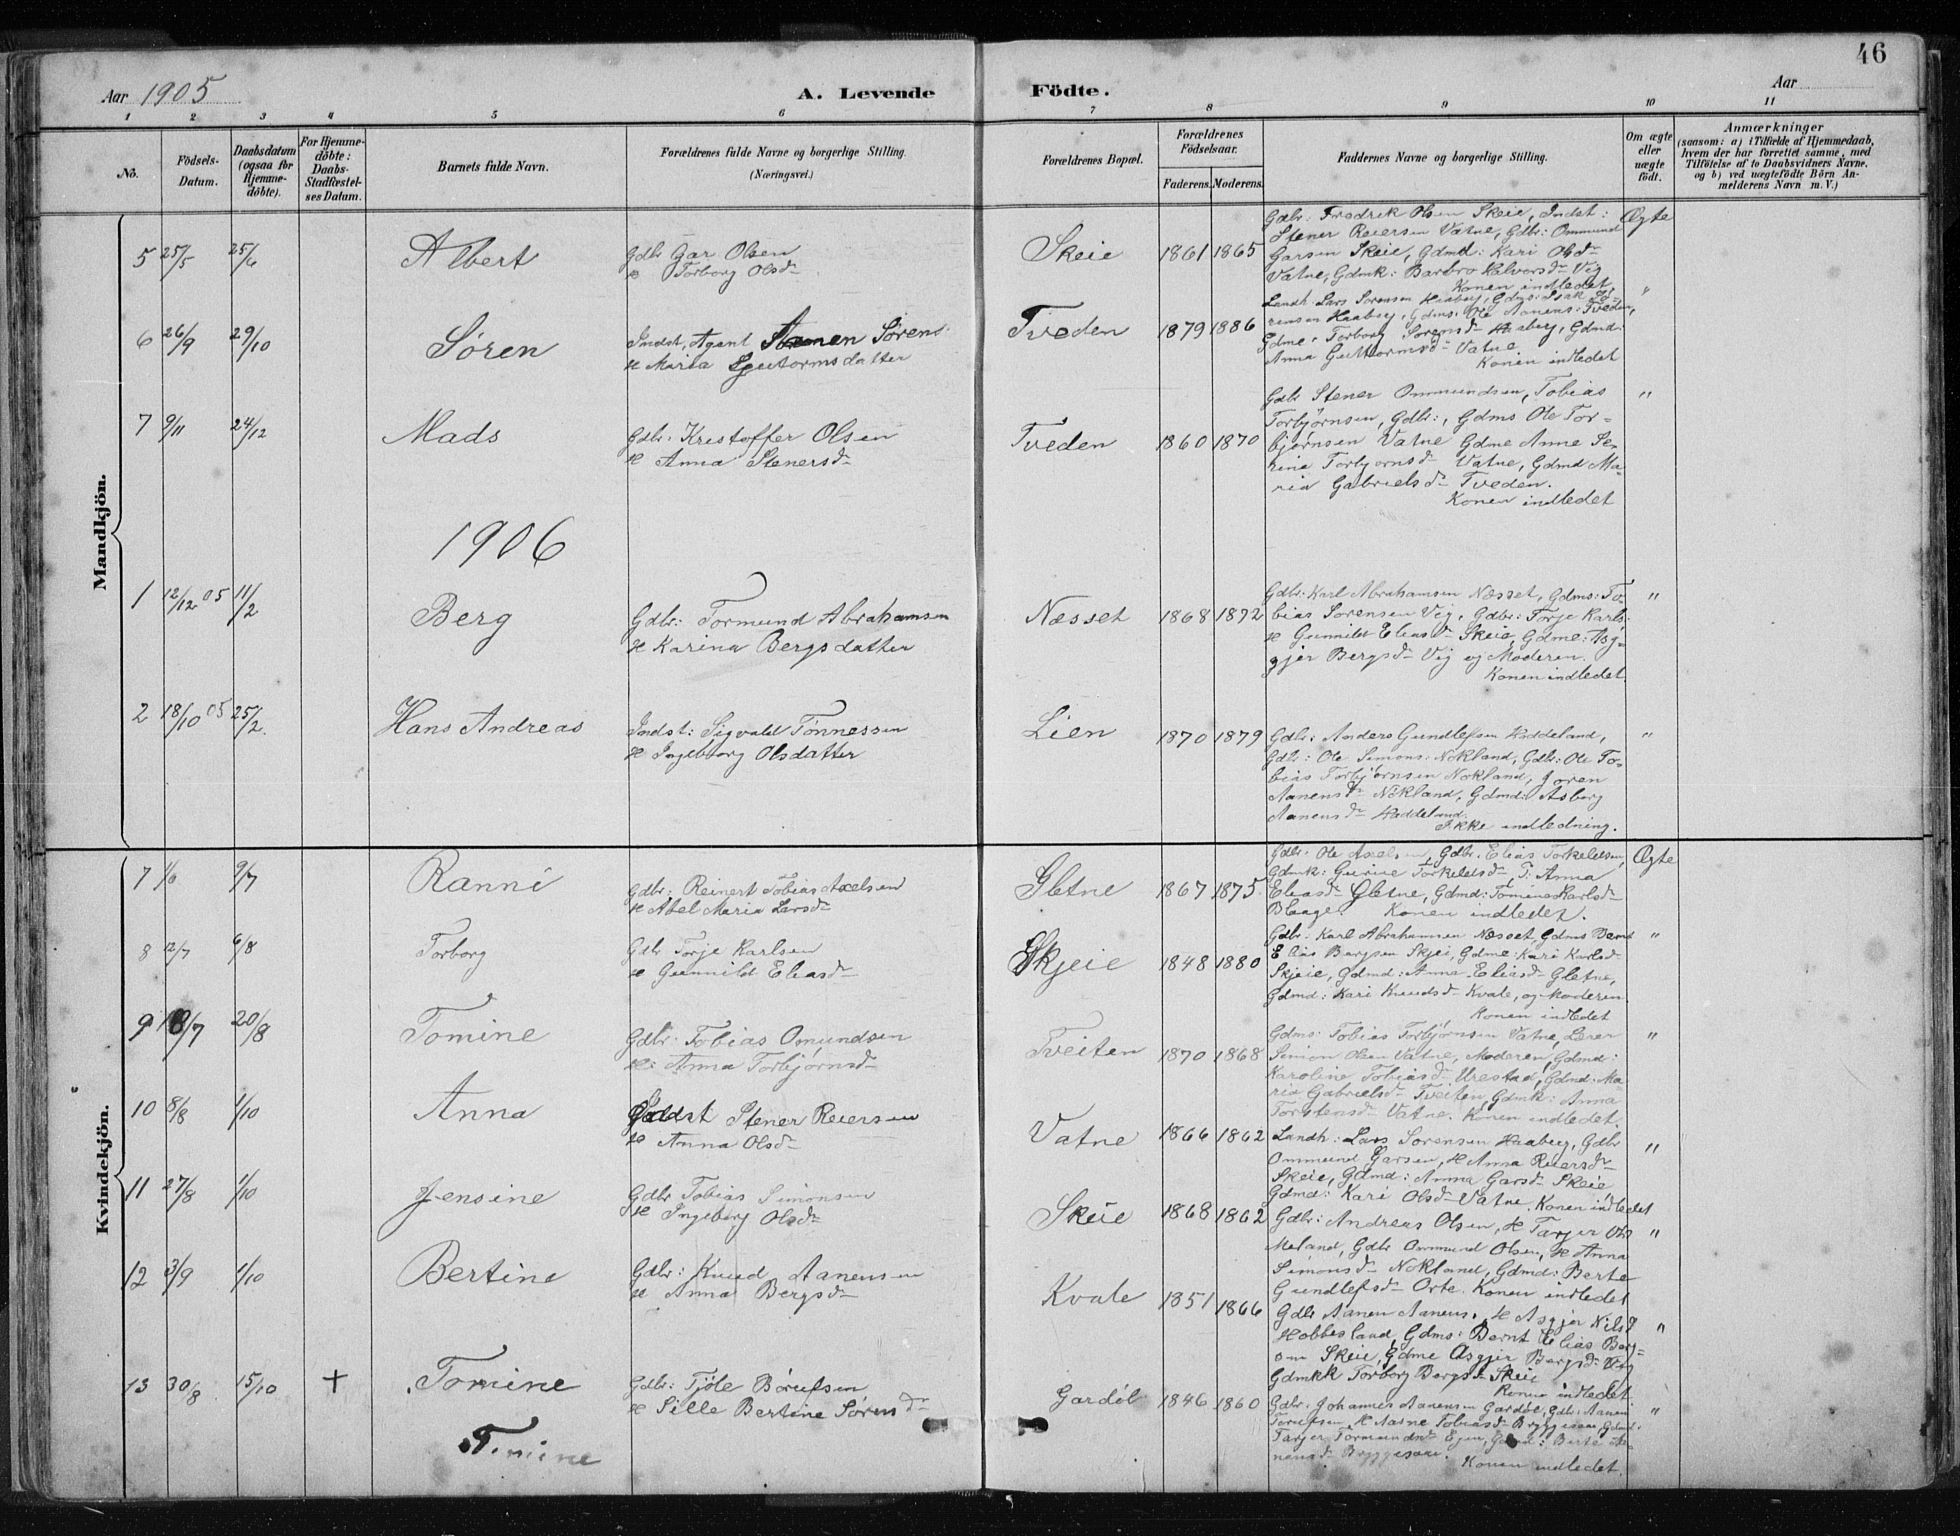 46
Aar 1905
A. Levende
Födte.
Aar
1 2 3 4 5 6 7 8 9 10 11
No.
Födsels-Datum.
Daabsdatum (ogsaa for Hjemme-döbte).
For Hjemme-döbte: Daabs-Stadfæstel-ses Datum.
Barnets fulde Navn.
Forældrenes fulde Navne og borgerlige Stilling.
(Næringsvei.)
Forældrenes Bopæl.
Forældrenes Födselsaar.
Faderens. Moderens.
Faddernes Navne og borgerlige Stilling.
Om ægte eller uægte födt.
Anmærkninger
(saasom: a) i Tilfælde af Hjemmedaab, hvem der har forrettet samme, med Tilföielse af to Daabsvidners Navne, og b) ved uægtefödte Börn An-melderens Navn m. V.)
Mandkjön.
5 25/5 25/6 Albert
Gdbr Gar Olsen
H Torborg Olsd
Skeie 1861 1865
Gdbr: Fredrik Olsen Skeie, Indst:
Stener Reiersen Vatne, Gdbr: Ommund
Garsen Skeie, Gdmd: Kari Olsd
Vatne, Gdmk: Barbro Halvorsd Vig
Konen indledet.
Ægte
6 26/9 29/10 Søren
Indst. Agent Aanen Sørens
H Maria Guttormsdatter
Tveden 1879 1886
Landh: Lars Sorensen Haaberg, Gdms: Isak Sö-
rensen Haaberg, Gdms: Ole Aanens: Tveden,
Gdme: Torborg Sorensd Haaberg, Gdmd:
Anna Guttormsd Vatne
Konen indledet
"
7 9/11 24/12 Mads
Gdbr. Kristoffer Olsen
H Anna Stenersd
Tveden 1860 1870
Gdbr Stener Ommundsen, Tobias
Torbjörnsen, Gdbr:, Gdms Ole Tor-
bjørnsen Vatne Gdme Anne Se-
rina Torbjornsd Vatne, Gdmd Ma-
ria Gabrielsd Tveden.
Konen indledet
"
1906
1 12/12 05 11/2 Berg
Gdbr: Tormund Abrahamsen
H Karina Bergsdatter
Næsset 1868 1872
Gdbr: Karl Abrahamsen Næsset, Gdms: To-
bias Sorensen Vig, Gdbr: Torje Karls:
H Gunnild Eliasd Skeie, Gdme: Asg-
gjer Bergsd Vig og Moderen.
Konen indledet.
"
2 18/10 05 25/2. Hans Andreas
Indst: Sigvald Tønnessen
H Ingeborg Olsdatter
Lien 1870 1879
Gdbr: Anders Gundlefsen Haddeland,
Gdbr: Ole Simons: Nokland, Gdbr: Ole To-
bias Torbjörnsen Nokland, Joren
Aanensd Nökland, Gdmd: Asberg
Aanensd Haddeland.
Ikke indledning.
"
Kvindekjön.
7 1/6 9/7 Ranni
Gdbr: Reinert Tobias Axelsen
H Abel Maria Larsd
Gletne 1867 1875
Gdbr. Ole Axelsen, Gdbr. Elias Torkeldsen,
Gdmk: Gurine Torkeldsd, T: Anna
Eliasd Gletne, Gdmd: Tomine Karlsd
Blaage. Konen indledet.
Ægte
8 12/7 6/8 Torborg
Gdbr Torje Karlsen
H Gunnild Eliasd
Skjeie 1848 1880
Gdbr: Karl Abrahamsen Næsset, Gdms Bernt
Elias Bergsen Skjei, Gdme: Kari Karlsd
Skjeie, Gdmd: Anna Eliasd Gletne,
Gdmd: Kari Knudsd Kvale, og Moderen
Konen indledet
"
9 18/7 20/8 Tomine
Gdbr: Tobias Omundsen
H: Anna Torbjørnsd
Tveiten 1870 1868
Gdms: Tobias Torbjørnsen Vatne, Lærer
Simon Olsen Vatne, Moderen, Gdmd:
Karoline Tobiasd Urestad, Gdmd: Ma-
ria Gabrielsd Tveiten, Gdmk: Anna
Torstensd Vatne. Konen indledet.
"
10 8/8 1/10 Anna
Indst Stener Reiersen
H Anna Olsd
Vatne 1866 1862
Landh: Lars Sorensen Haaberg, Gdbr
Ommund Garsen, H Anna Reiersd
Skeie, Gdmd: Anna Garsd Skeie
Gdmd: Kari Olsd Vatne. Konen indledet
"
11 27/8 1/10 Jensine
Gdbr Tobias Simonsen
H Ingeborg Olsd
Skeie 1868 1862
Gdbr: Andreas Olsen, H Tarjer Ols
Meland, Gdbr Ommund Olsen, H Anna
Simonsd Nokland, Gdmd: Berte
Gundlefsd Orte. Konen indledet
"
12 3/9 1/10 Bertine
Gdbr: Knud Aanensen
H Anna Bergsd
Kvale 1851 1866
Gdbr Aanen Aanens. H Asgjer Nilsd
Hobbesland, Gdms: Bernt Elias Berg-
sen Skeie, Gdme Asgjer Bergsd Vig
Gdmkk Torborg Bergsd Skeie
Konen indledet
"
13 30/8 15/10 + Tomine
Gdbr: Tjöle Börufsen
H Sille Bertine Sørensd
Tomine
Gardöl 1846 1860
Gdbr. Johannes Aanensen Gardöl, Gdbr: Aanen
Konen indledet.
"